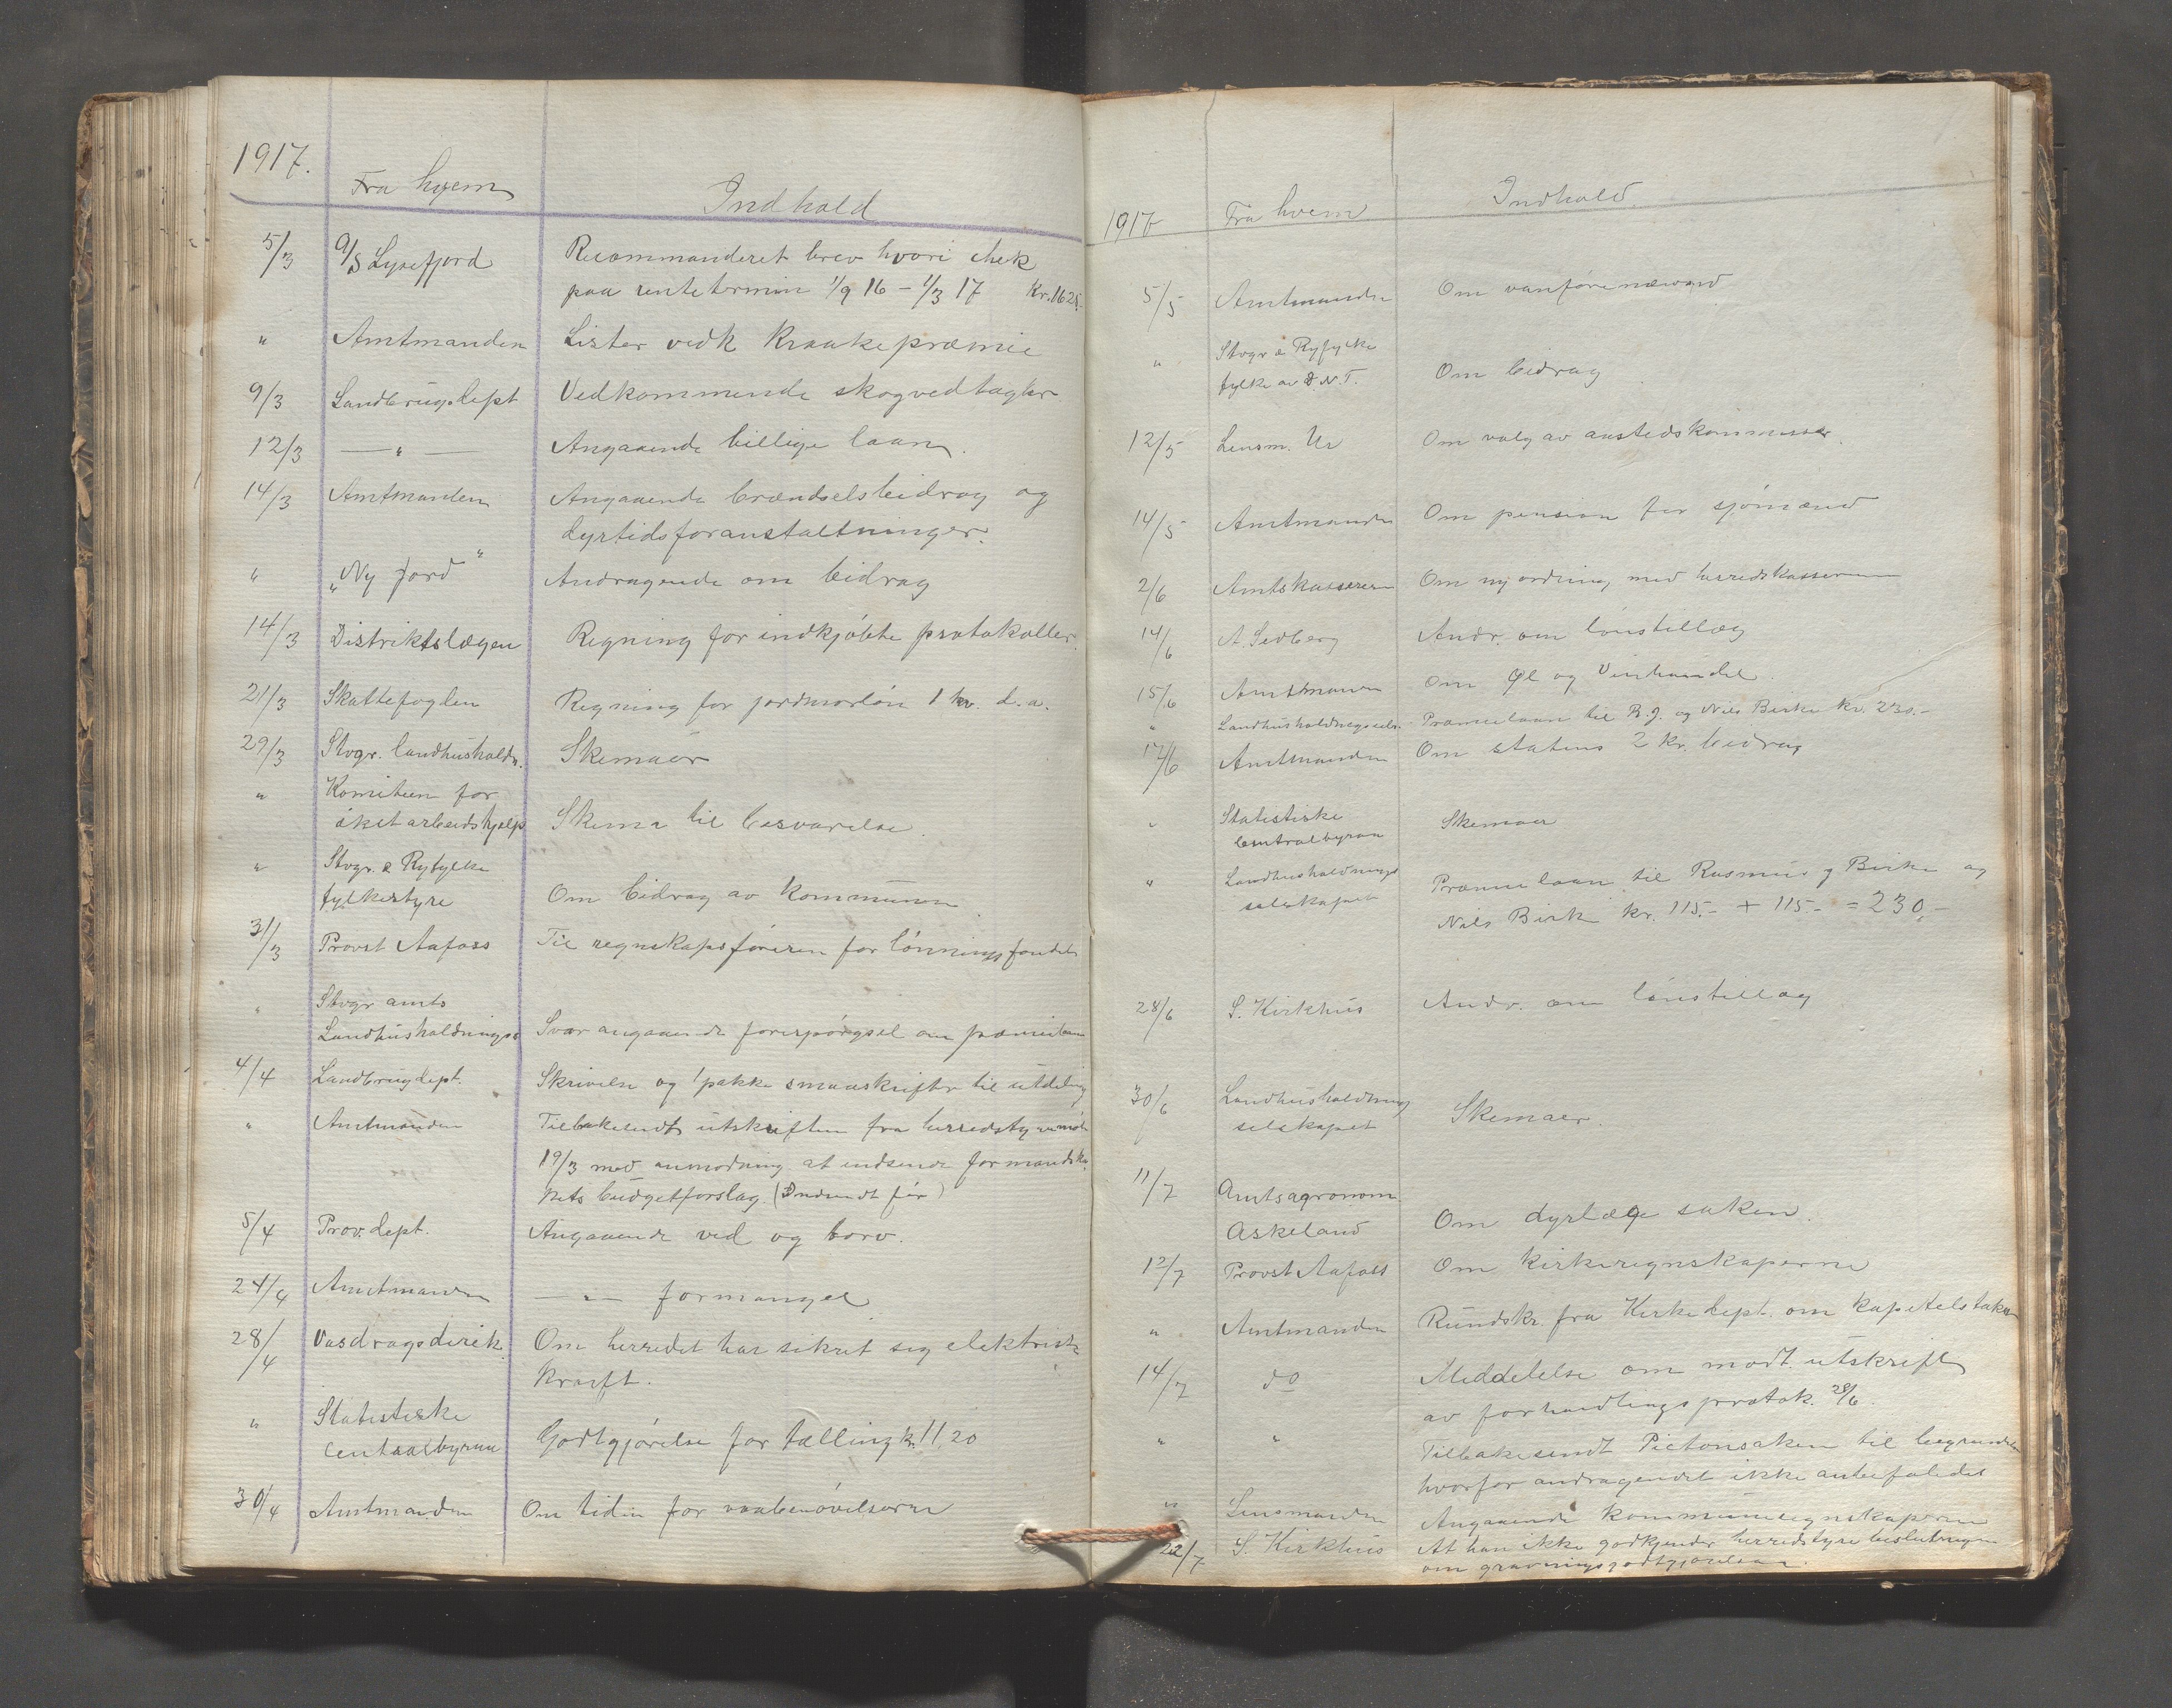 1917.
Fra hvem
Indhold
5/3 A/S Lysefjord Recommanderet brev hvori chek
paa rentetermin 1/9 16 – 1/3 17 Kr. 1625.-
" Amtmanden Lister vedk Kraakepræmie
9/3 Landbrugsdept Vedkommende skogvedtægter
12/3 — " — Angaaende billige laan.
14/3 Amtmanden Angaaende brændselsbeidrag og
dyrtidsforanstaltninger.
" "Ny Jord" Andragende om bidrag
14/3 Distriktslægen Regning for indkjøpte protokoller.
21/3 Skattefogden Regning for jordmorløn 1 kv. d.a.
29/3 Stvgr. landhusholdn. Skemaer
" Komiteen for
øket arbeidshjælp Skema til besvarelse.
" Stvgr. & Ryfylke
fylkestyre Om bidrag av Kommunen
31/3 Provst Aafoss Til regnskapsføreren for lønningsfondet
" Stvgr amts
Landhusholdnings Svar angaaende forespørgsel om præmielaan
4/4 Landbrugdept. Skrivelse og 1 pakke smaaskrifter til utdeling
" Amtmanden Tilbakesendt utskriften fra herredstyremøte
19/3 med anmodning at indsende formandska-
pets budgetforslag. (Indsendt før)
5/4 Prov. dept. Angaaende ved og torv.
24/4 Amtmanden — " — formangel
28/4 Vasdragsdirek. Om herredet har sikret sig elektrisk
Kraft.
" Statistiske
Centralbyraa Godtgjørelse for tælling kr. 11,20
30/4 Amtmanden Om tiden for vaabenøvelserne
1917 Fra hvem Indhold.
5/5 Amtmanden Om vanførenævnd
" Stvgr & Ryfylke
fylke av D.N.T. Om bidrag
12/5 Lensm. Ur Om valg av anstedskommissær.
14/5 Amtmanden Om pension for sjømænd
2/6 Amtskassereren Om ny ordning med herredskassereren
14/6 A. Sedberg Andr. om lønstillæg
15/6 Amtmanden Om Øl og Vinhandel.
" Landhusholdningsselsk. Præmielaan til R.J. og Nils Birke kr. 230.-
17/6 Amtmanden Om statens 2 kr. bidrag
" Statistiske
Centralbyraa Skemaer
" Landhusholdnings
selskapet Præmielaan til Rasmus J Birke og
Nils Birke kr. 115.- + 115.- = 230.-
28/6 S. Kirkhus Andr. om lønstillæg
30/6 Landhusholdning
selskapet Skemaer.
11/7 Amtsagronom
Askeland Om dyrlæge saken.
12/7 Provst Aafoss Om Kirkeregnskaperne
" Amtmanden Rundskr. fra Kirkedept. om kapitelstakst
14/7 do Meddelelse om modt. utskrift
av forhandlingsprotok. 28/6.
" " Tilbakesendt Pictonsaken til begrundelse
hvorfor andragendet ikke anbefaledes
" Lensmanden Angaaende Kommuneregnskaperne
22/7 S. Kirkhus At han ikke godkjender herredstyre beslutningen
om gravningsgodtgjørelsen.